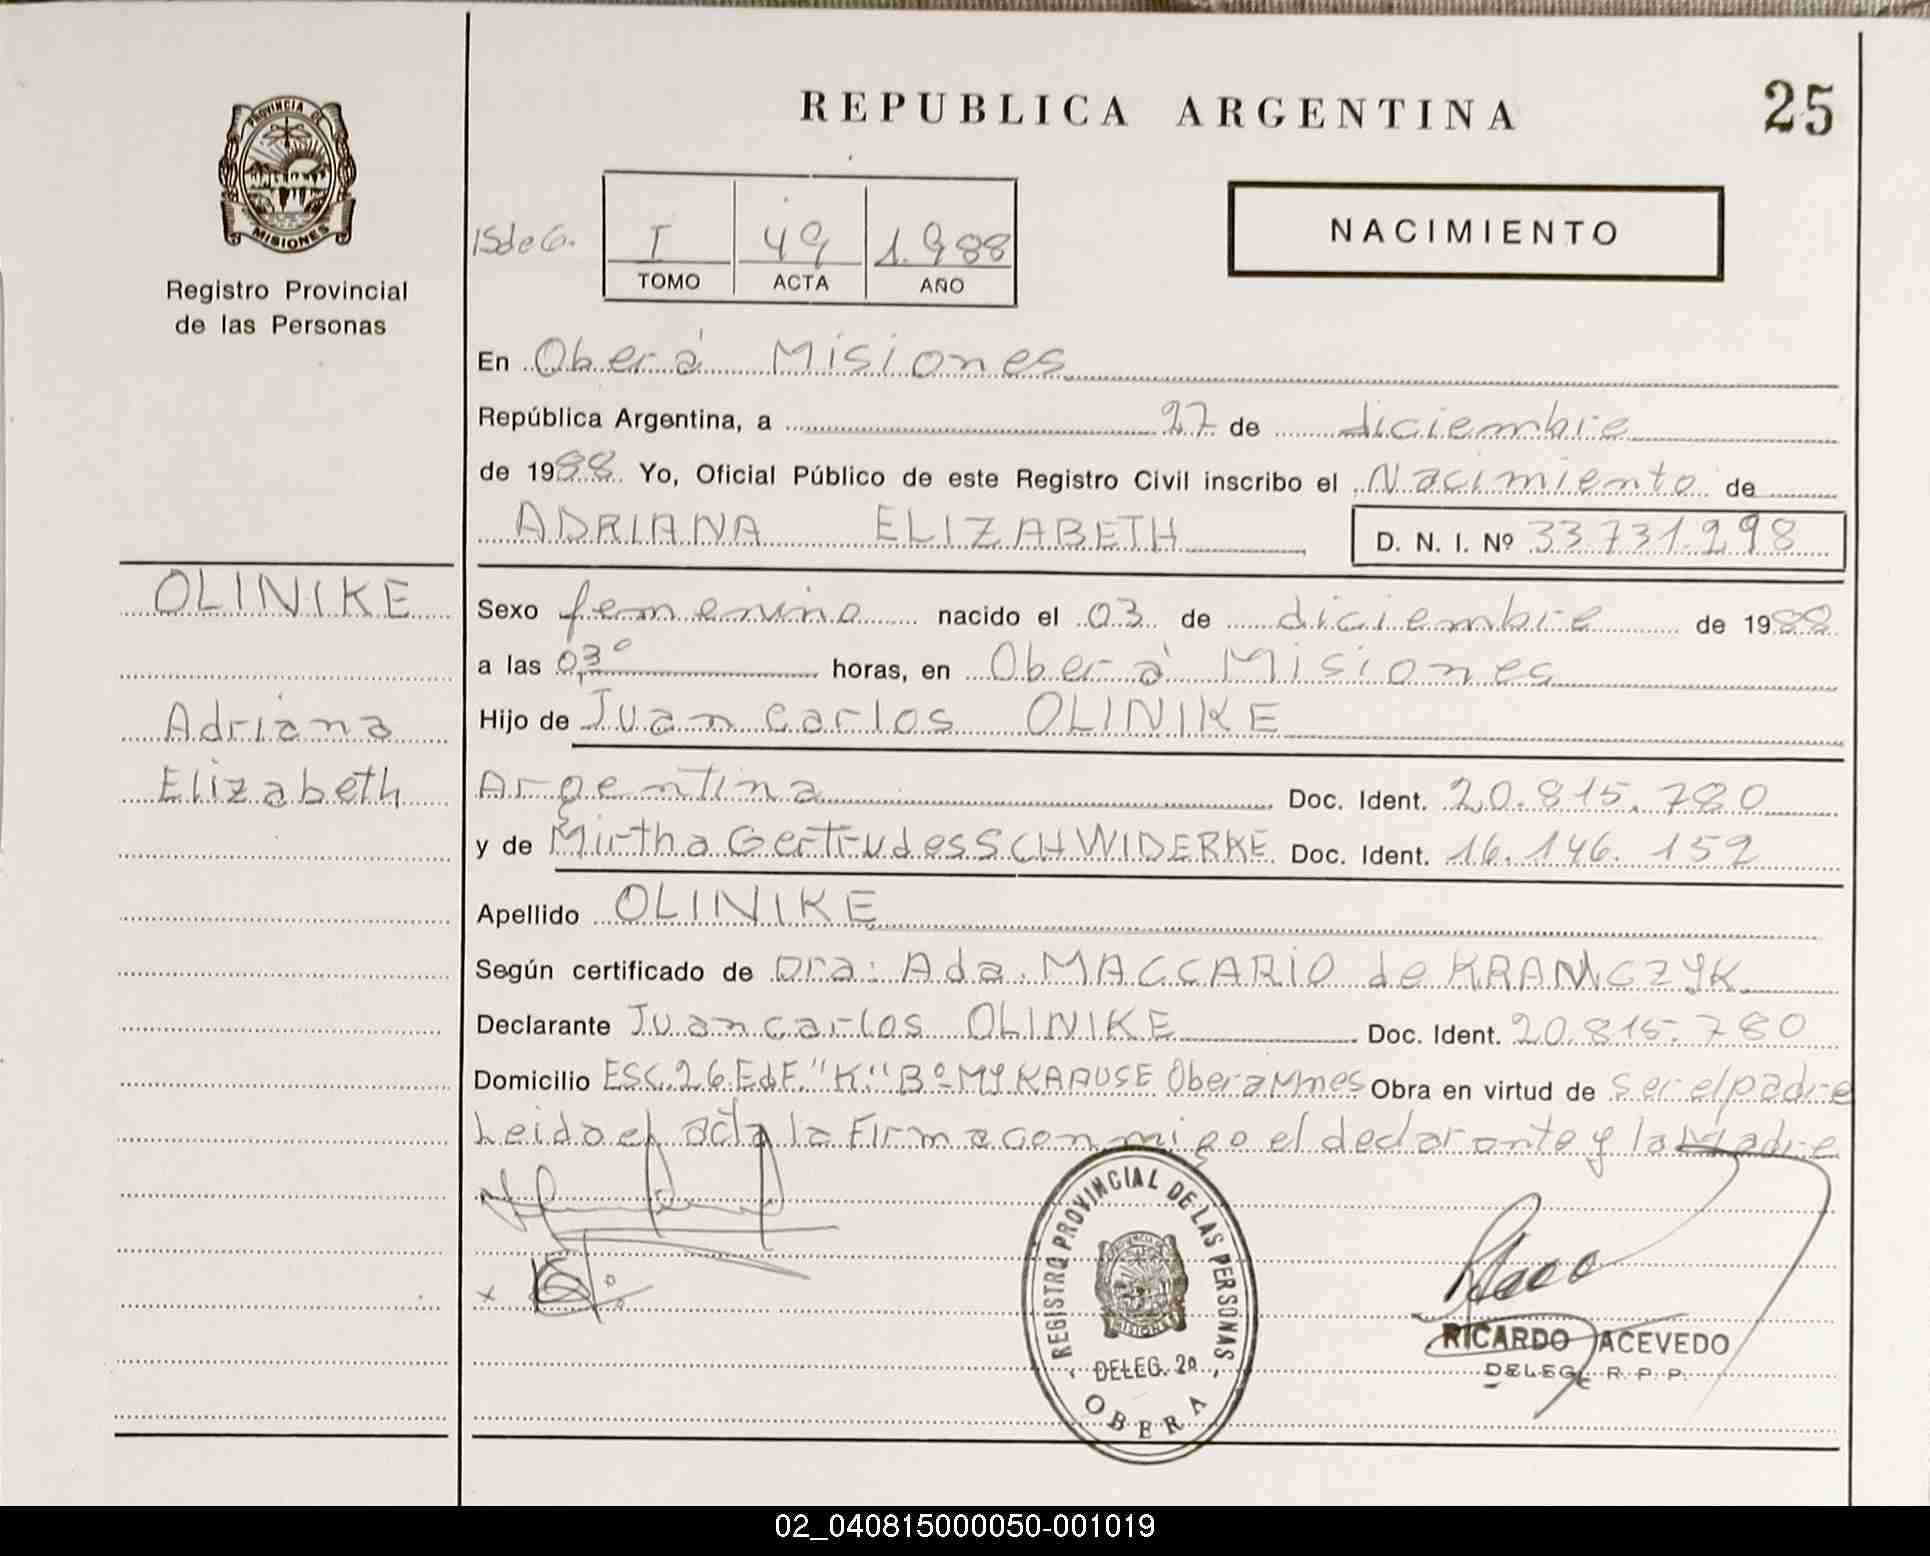 PROVINCIA DE
MISIONES
Registro Provincial
de las Personas
REPUBLICA ARGENTINA
25
NACIMIENTO
I 49 1.988
TOMO ACTA AÑO
En Oberá Misiones
República Argentina, a 27 de diciembre
de 1988. Yo, Oficial Público de este Registro Civil inscribo el Nacimiento de
ADRIANA ELIZABETH D. N. I. Nº 33.731.298
OLINIKE
Adriana
Elizabeth
Sexo femenino nacido el 03 de diciembre de 1988
a las 03º horas, en Oberá Misiones
Hijo de Juan carlos OLINIKE
Argentina Doc. Ident. 20.815.780
y de Mirtha Gertrudes SCHWIDERKE Doc. Ident. 16.146.152
Apellido OLINIKE
Según certificado de Dra: Ada MACCARIO de KRAMCZYK
Declarante Juan carlos OLINIKE Doc. Ident. 20.815.780
Domicilio ESC. 26 Edf. "K" Bº My KRAUSE Obera Mnes Obra en virtud de ser el padre
Leida el acta la Firma conmigo el declarante y la Madre
REGISTRO PROVINCIAL DE LAS PERSONAS
PROVINCIA DE
MISIONES
DELEG. 2a
OBERA
RICARDO ACEVEDO
DELEG. R. P. P.
02_040815000050-001019